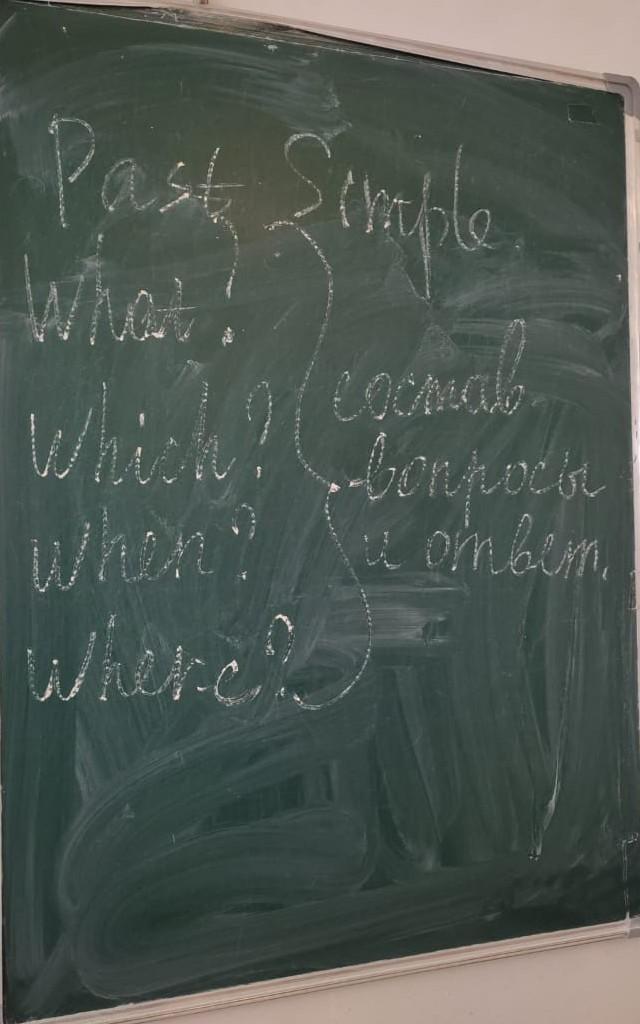 Past Simple.
What?
Which?
When?
Where?
состав
вопросы
и ответ.